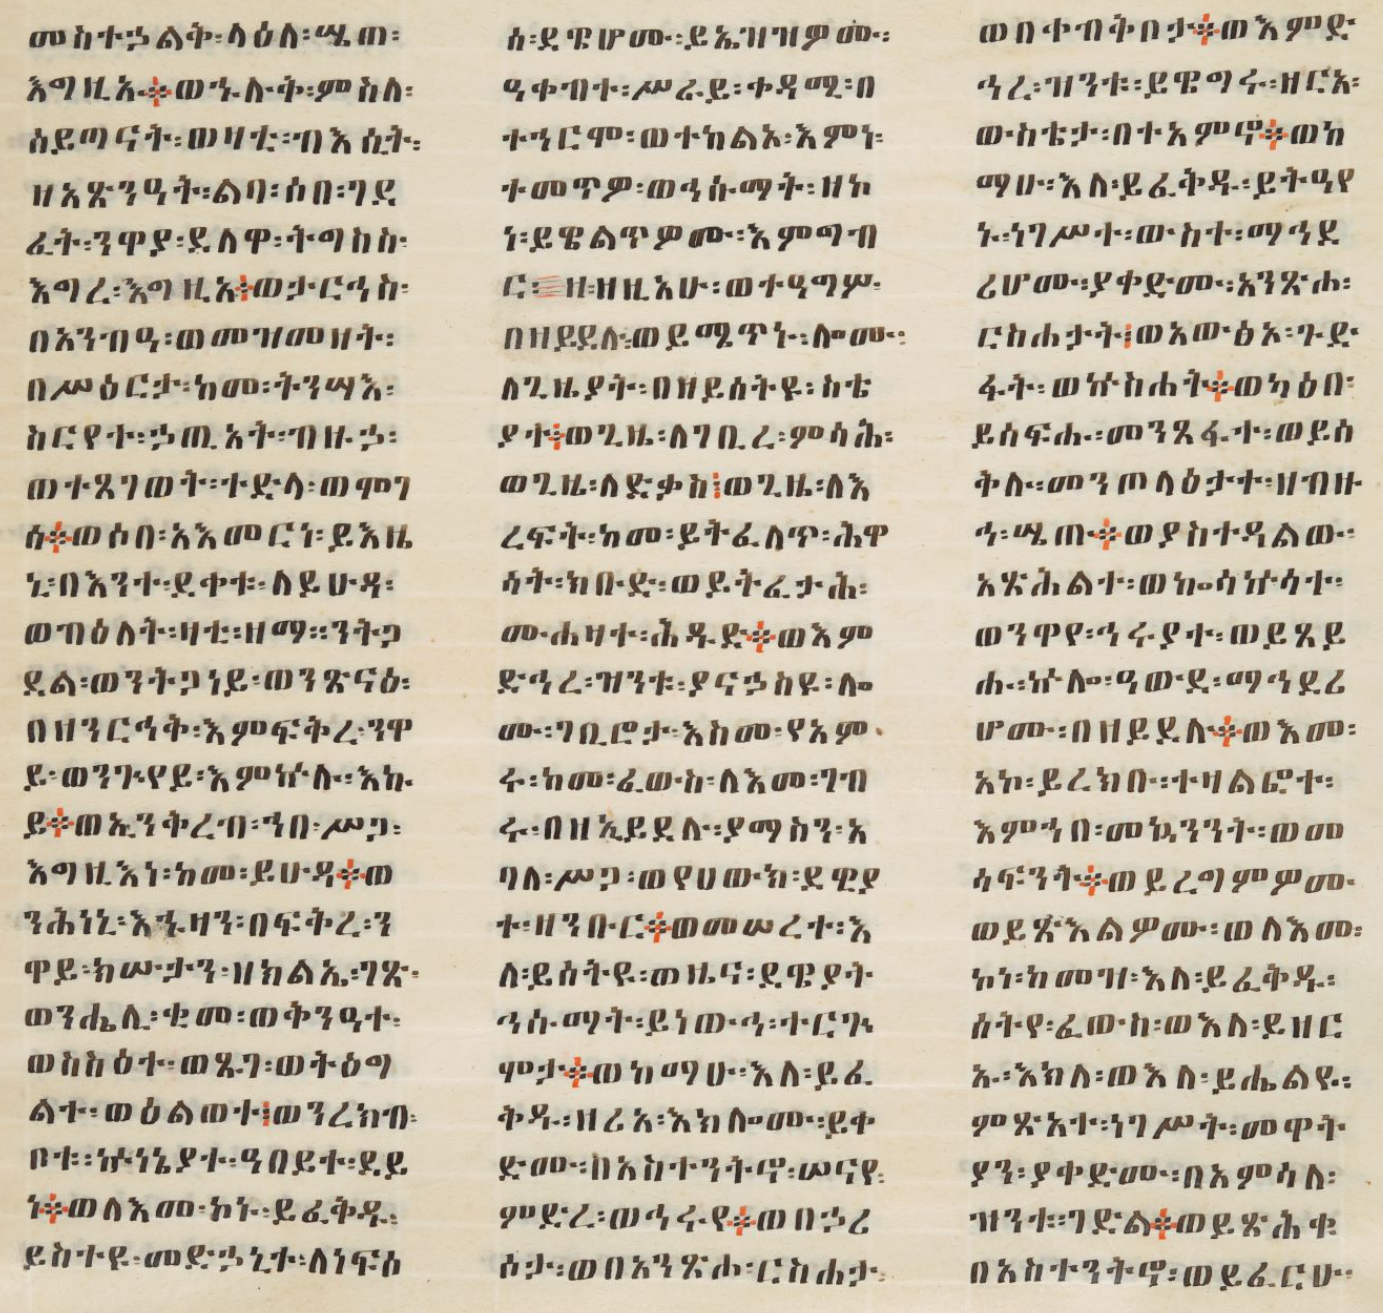 መስተኃልቅ፡ላዕለ፡ሤጠ፡
እግዚአ፨ወኁሉቅ፡ምስለ፡
ሰይጣናት፡ወዛቲ፡ብእሲት፡
ዘአጽንዓት፡ልባ፡ሶበ፡ገደ
ፈት፡ንዋያ፡ደለዋ፡ትግከስ፡
እግረ፡እግዚአ፨ወታርኅስ፡
በአንብዓ፡ወመዝመዘት፡
በሥዕርታ፡ከመ፡ትንሣእ፡
ስርየተ፡ኃጢአት፡ብዙኃ፡
ወተጸገወት፡ተድላ፡ወሞገ
ሰ፨ወሶበ፡አእመርነ፡ይእዜ
ኒ፡በእንተ፡ደቀቱ፡ለይሁዳ፡
ወብዕለት፡ዛቲ፡ዘማ።ንትጋ
ደል፡ወንትጋነይ፡ወንጽናዕ፡
በዘንርኅቅ፡እምፍቅረ፡ንዋ
ይ፡ወንጉየይ፡እምኵሉ፡እኩ
ይ፨ወኢንቅረብ፡ኀበ፡ሥጋ፡
እግዚእነ፡ከመ፡ይሁዳ፨ወ
ንሕነኒ፡እኁዛን፡በፍቅረ፡ን
ዋይ፡ክሡታን፡ዘክልኤ፡ገጽ፡
ወንሔሊ፡ቂመ፡ወቅንዓተ፡
ወስስዕተ፡ወጼጋ፡ወትዕግ
ልተ፡ወዕልወተ፤ወንረክብ፡
ቦቱ፡ኵነኔያተ፡ዓበይተ፡ደይ
ነ፨ወለእመ፡ኮኑ፡ይፈቅዱ፡
ይስተዩ፡መድኃኒተ፡ለነፍስ
ሰ፡ደዌሆሙ፡ይኤዝዝዎሙ፡
ዓቀብተ፡ሥራይ፡ቀዳሚ፡በ
ተኀርሞ፡ወተከልኦ፡እምነ፡
ተመጥዎ፡ወኃሱማት፡ዘኮ
ነ፡ይዌልጥዎሙ፡እምግብ
ር፡ዘ፡ዘዚአሁ፡ወተዓግሦ፡
በዘይደሉ፡ወይሜጥኑ፡ሎሙ፡
ለጊዜያት፡በዘይሰትዩ፡ስቴ
ያተ፨ወጊዜ፡ለገቢረ፡ምሳሕ፡
ወጊዜ፡ለድቃስ፤ወጊዜ፡ለእ
ረፍት፡ከመ፡ይትፈለጥ፡ሕዋ
ሳት፡ክቡድ፡ወይትፈታሕ፡
ሙሐዛተ፡ሕዱድ፨ወእም
ድኅረ፡ዝንቱ፡ያናኃስዩ፡ሎ
ሙ፡ገቢሮታ፡እስመ፡የአም
ሩ፡ከመ፡ፈውስ፡ለእመ፡ገብ
ሩ፡በዘኢይደሉ፡ያማስን፡አ
ባለ፡ሥጋ፡ወየሀውክ፡ደዊያ
ተ፡ዘንቡር፨ወመሠረተ፡እ
ለ፡ይሰትዩ፡ወዜና፡ደዌያት
ኀሱማት፡ይነውኅ፡ተርጉ
ሞታ፨ወከማሁ፡እለ፡ይፈ
ቅዱ፡ዘሪአ፡እክሎሙ፡ይቀ
ድሙ፡በአስተንትኖ፡ሠናየ፡
ምድረ፡ወኅሩየ፨ወበኃሪ
ሶታ፡ወበአንጽሖ፡ርስሐታ፡
ወበቀብቅቦታ፨ወእምድ
ኅረ፡ዝንቱ፡ይዌግሩ፡ዘርአ፡
ውስቴታ፡በተአምኖ፨ወከ
ማሁ፡እለ፡ይፈቅዱ፡ይትዓየ
ኑ፡ነገሥተ፡ውስተ፡ማኅደ
ሪሆሙ፡ያቀድሙ፡አንጽሖ፡
ርስሐታት፤ወአውዕኦ፡ጉድ
ፋት፡ወኵስሐት፨ወካዕበ፡
ይሰፍሑ፡መንጸፋተ፡ወይሰ
ቅሉ፡መንጦላዕታተ፡ዘብዙ
ኅ፡ሤጡ፨ወያስተዳልው፡
አጽሕልተ፡ወኰሳኵሳተ፡
ወንዋየ፡ኅሩያተ፡ወይጼይ
ሑ፡ኵሎ፡ዓውደ፡ማኅደሪ
ሆሙ፡በዘይደሉ፨ወእመ፡
አኮ፡ይረክቡ፡ተዛልፎተ፡
እምኀበ፡መኳንንት፡ወመ
ሳፍንት፨ወይረግምዎሙ፡
ወይጽእልዎሙ፡ወለእመ፡
ኮነ፡ከመዝ፡እለ፡ይፈቅዱ፡
ሰትየ፡ፈውስ፡ወእለ፡ይዘር
ኡ፡እክለ፡ወእለ፡ይሔልዩ፡
ምጽአተ፡ነገሥት፡መዋት
ያን፡ያቀድሙ፡በአምሳለ፡
ዝንቱ፡ገድል፨ወይጽሕቁ
በአስተንትኖ፡ወይፈርሁ፡